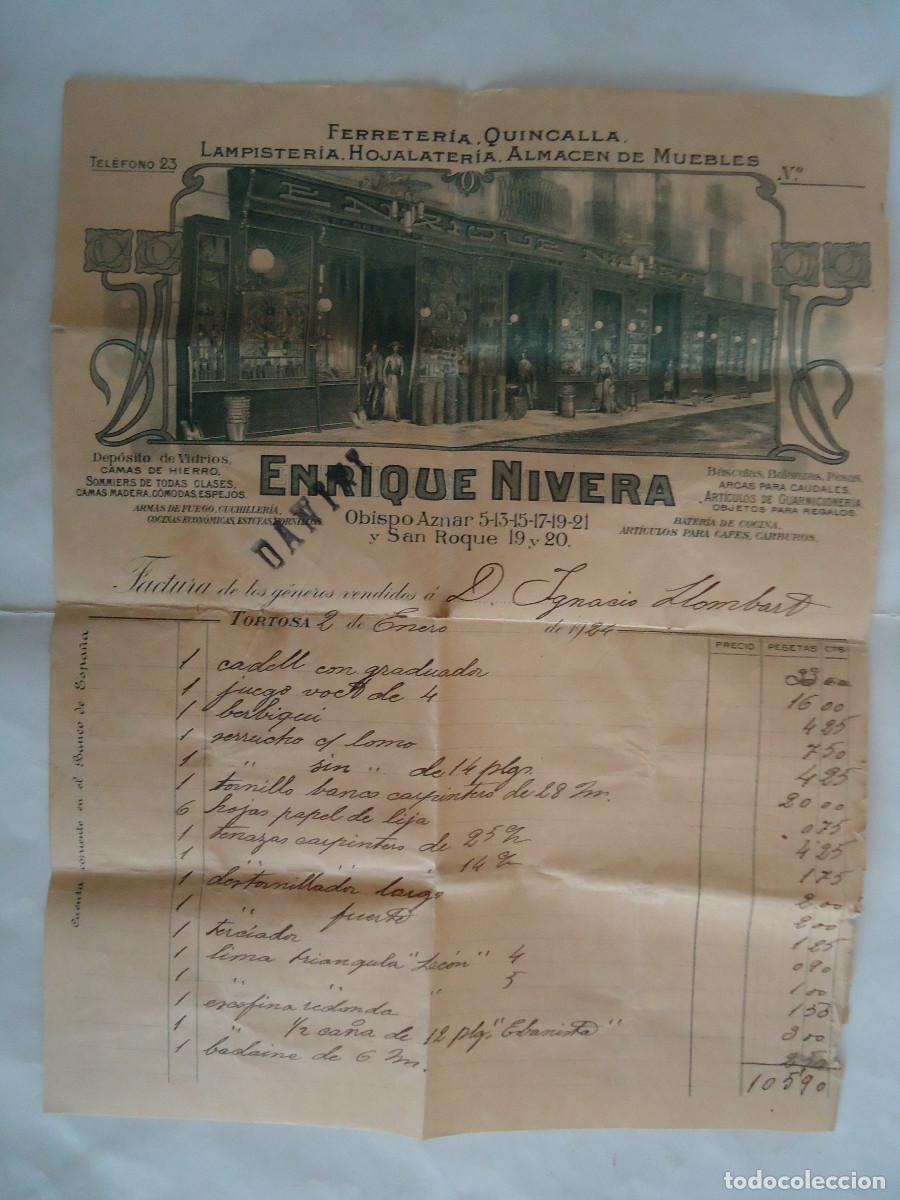 FERRETERÍA, QUINCALLA,
LAMPISTERÍA, HOJALATERÍA, ALMACEN DE MUEBLES
TELÉFONO 23
N.º
ENRIQUE NIVERA
Depósito de Vidrios,
CAMAS DE HIERRO,
SOMMIERS DE TODAS CLASES,
CAMAS MADERA, CÓMODAS, ESPEJOS.
ARMAS DE FUEGO, CUCHILLERÍA,
COCINAS ECONOMICAS, ESTUFAS, TORNILLOS
ENRIQUE NIVERA
Obispo Aznar 5-13-15-17-19-21
y San Roque 19 y 20.
Básculas, Balanzas, Pesas,
ARCAS PARA CAUDALES,
ARTÍCULOS DE GUARNICIONERÍA
OBJETOS PARA REGALOS.
BATERÍA DE COCINA,
ARTÍCULOS PARA CAFES, CARBUROS.
Factura de los géneros vendidos á D. Ignacio Llombart
TORTOSA 2 de Enero de 1924
PRECIO PESETAS CTS.
Cuenta corriente en el Banco de España
1 cadell con graduador 33 00
1 juego de 4 16 00
1 berbiqui 4 25
1 serrucho c/ lomo 7 50
1 " sin " de 14 plgs. 4 25
1 tornillo banco carpintero de 28 m. 20 00
6 hojas papel de lija 0 75
1 tenazas carpintero de 25 4 25
1 " " 14 1 75
1 destornillador largo 2 00
1 " fuerte 2 00
1 terciador 1 25
1 lima triangula "León" 4 0 90
1 " " 5 1 00
1 escofina redonda 1 50
1 " 1/2 caña de 12 plgs "Ebanista" 3 00
1 badaine de 6 m. 2 50
105 90
todocoleccion